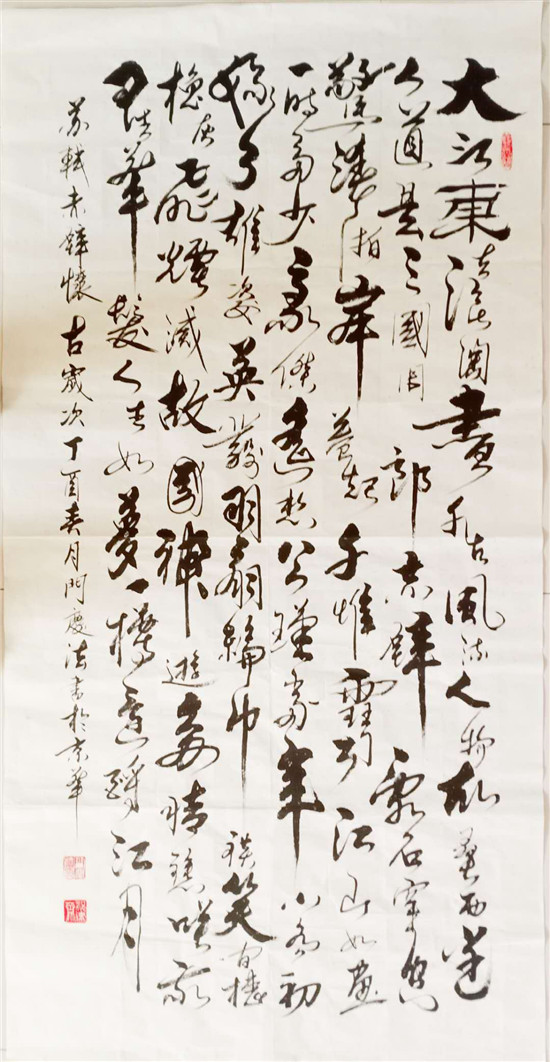 大江東去浪淘盡千古風流人物故壘西邊
人道是三國周郎赤壁亂石穿空
驚濤拍岸卷起千堆雪江山如畫
一時多少豪傑遙想公瑾當年小喬初
嫁了雄姿英發羽扇綸巾談笑間檣
櫓灰飛煙滅故國神遊多情應笑我
早生華髮人生如夢一樽還酹江月
苏軾赤壁懷古歲次丁酉春月門慶法書於京華